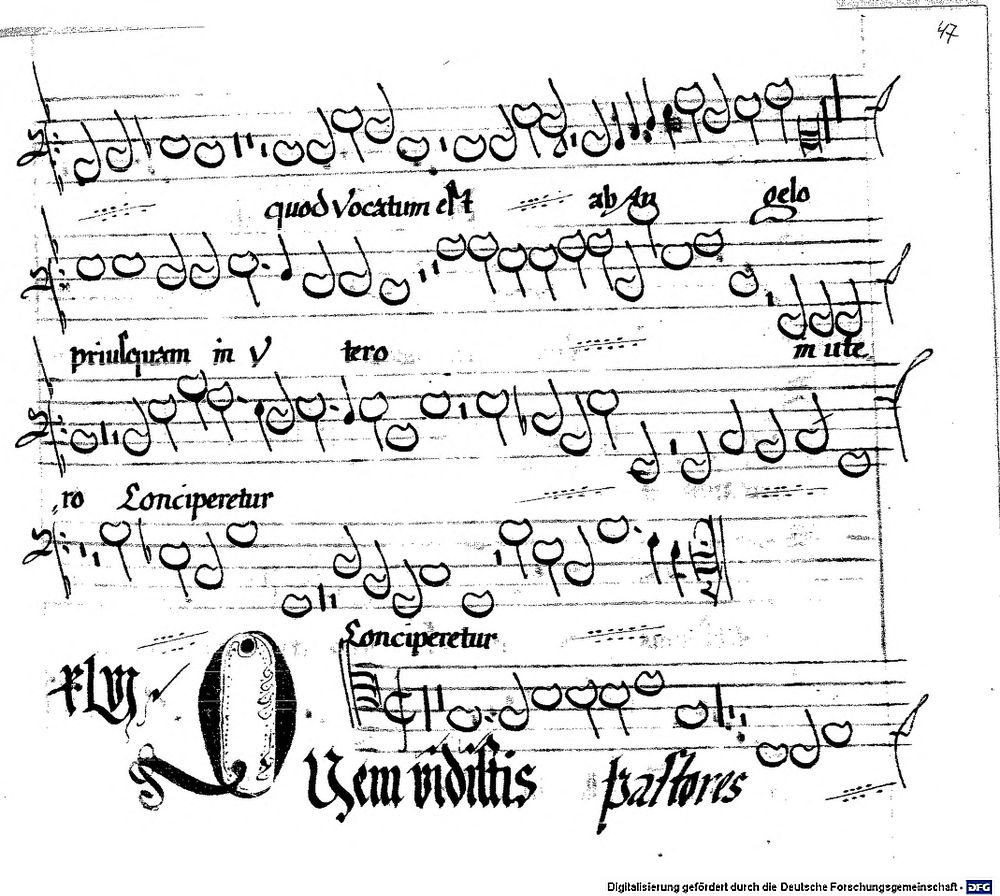 47
quod vocatum est ab An gelo
priusquam in v tero in ute
ro Conciperetur
Conciperetur
xlvij
Quem vidistis pastores
Digitalisierung gefördert durch die Deutsche Forschungsgemeinschaft - DFG